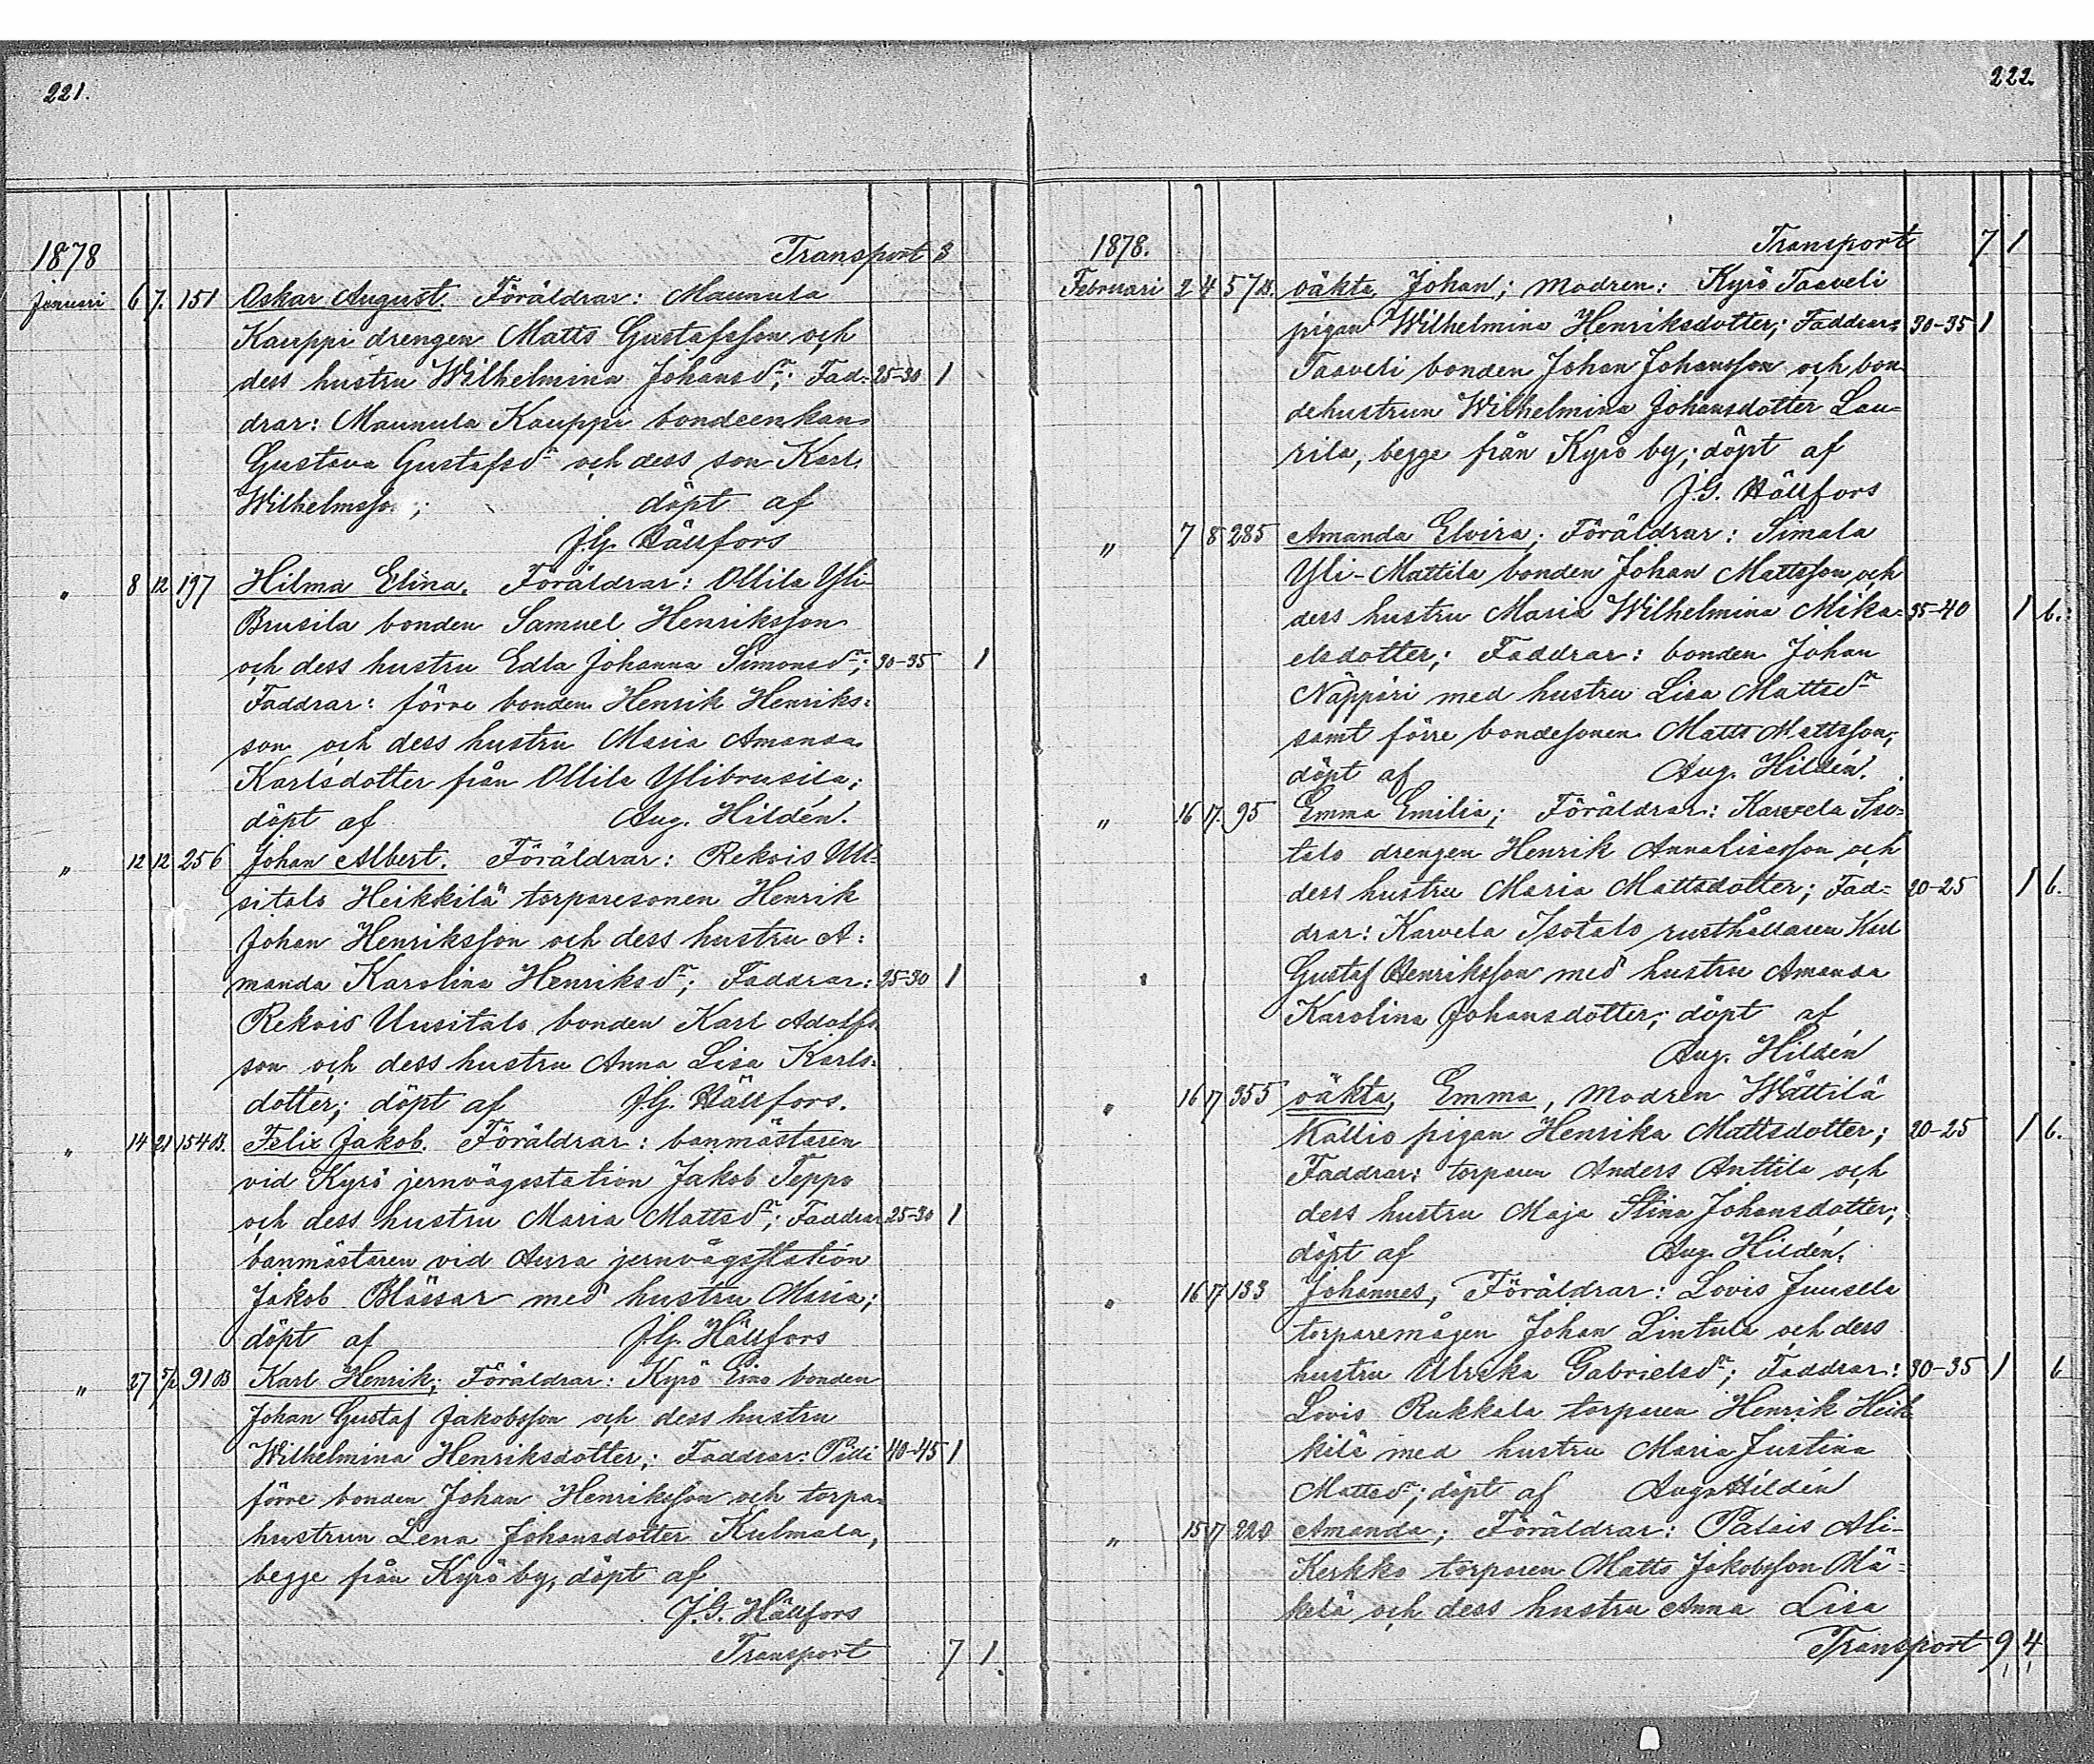 221.
1878 Transport 3
Januari 6 7. 151 Oskar August. Föräldrar: Maunula
Kauppi drengen Matts Gustafsson och
dess hustru Wilhelmina Johansdr; Fad- 25-30 1
drar: Maunula Kauppi bondeenkan
Gustava Gustafsdr och dess son Karl
Wilhelmsson; döpt af
J.G. Hällfors
" 8 12 197 Hilma Elina. Föräldrar: Ollila Yli-
Brusila bonden Samuel Henriksson
och dess hustru Edla Johanna Simonsdr; 30-35 1
Faddrar: förre bonden Henrik Henriks-
son och dess hustru Maria Amanda
Karlsdotter från Ollila Ylibrusila;
döpt af Aug. Hildén.
" 12 12 256 Johan Albert. Föräldrar: Rekois Uu-
sitalo Heikkilä torparesonen Henrik
Johan Henriksson och dess hustru A-
manda Karolina Henriksdr; Faddrar: 25-30 1
Rekois Uusitalo bonden Karl Adolfs
son och dess hustru Anna Lisa Karls-
dotter; döpt af J.G. Hällfors.
" 14 21 154 B. Felix Jakob. Föräldrar: banmästaren
vid Kyrö jernvägsstation Jakob Teppo
och dess hustru Maria Mattsdr; Faddrar 25-30 1
banmästaren vid Aura jernvägsstation
Jakob Blässar med hustru Maria;
döpt af J.G. Hällfors
" 27 5/2 91 B Karl Henrik; Föräldrar: Kyrö Eino bonden
Johan Gustaf Jakobsson och dess hustru
Wilhelmina Henriksdotter; Faddrar: 40-45 1
förre bonden Johan Henriksson och torpa-
hustrun Lena Johansdotter Kulmala,
begge från Kyrö by; döpt af
J.G. Hällfors
Transport 7 1.
222.
1878. Transport 7 1
Februari 2 4 57 B. oäkta, Johan; modren: Kyrö Taaveli
pigan Wilhelmina Henriksdotter; Faddrar: 30-35 1
Taaveli bonden Johan Johansson och bon-
dehustrun Wilhelmina Johansdotter Lau-
rila, begge från Kyrö by; döpt af
J.G. Hällfors
" 7 8 285 Amanda Elvira; Föräldrar: Simala
Yli-Mattila bonden Johan Mattsson och
dess hustru Maria Wilhelmina Mika- 35-40 1 6.
elsdotter; Faddrar: bonden Johan
Näppäri med hustru Lisa Mattsdr
samt förre bondesonen Matts Mattsson;
döpt af Aug. Hildén.
" 16 17. 95 Emma Emilia; Föräldrar: Karvela Iso-
talo drengen Henrik Annalisasson och
dess hustru Maria Mattsdotter; Fad- 20-25 1 6.
drar: Karvela Isotalo rusthållaren Karl
Gustaf Henriksson med hustru Amanda
Karolina Johansdotter; döpt af
Aug. Hildén
" 16 17 355 oäkta, Emma, modren Wättilä
Kallio pigan Henrika Mattsdotter; 20-25 1 6.
Faddrar: torparen Anders Anttila och
dess hustru Maja Stina Johansdotter;
döpt af Aug. Hildén.
" 16 17 133 Johannes, Föräldrar: Lovis Juusela
torparemågen Johan Lintula och dess
hustru Ulrika Gabrielsdr; Faddrar: 30-35 1 6
Lovis Rukkala torparen Henrik Heik
kilä med hustru Maria Justina
Mattsdr; döpt af Aug. Hildén
" 15 17 220 Amanda; Föräldrar: Palais Ali-
Kerkko torparen Matts Jakobsson Mä-
kelä och dess hustru Anna Lisa
Transport 9 4